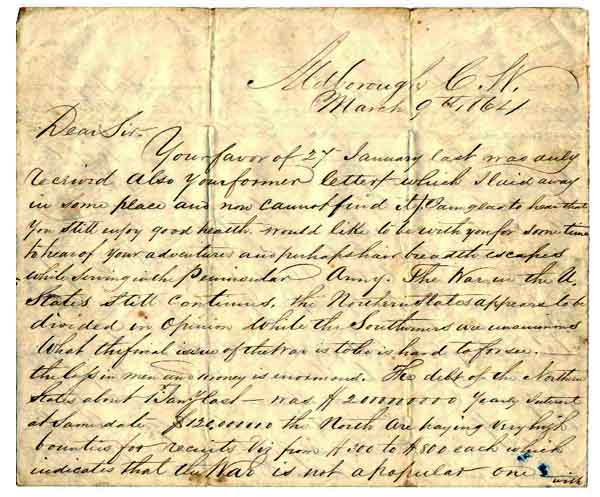 Aldborough C.W.
March 9th, 1864
Dear Sir—
Your favor of 27 January last was duly
received Also Your former letter which I laid away
in some place and now cannot find it, I am glad to hear that
You still enjoy good health would like to be with you for some time
to hear of Your adventures and perhaps hair breadth escapes
while serving in the Peninsular Army. The War in the U.
States still continues, the Northern States appears to be
divided in Opinion While the Southerners are unanimous
What the final issue of the War is to be is hard to forsee.—
the loss in men and money is enormous. The debt of the Northern
States about Jany last — was $2000000000 Yearly Interest
at same date $12000000 the North Are paying very high
bounties for recruits Viz from $300 to $800 each which
indicates that the War is not a popular one with